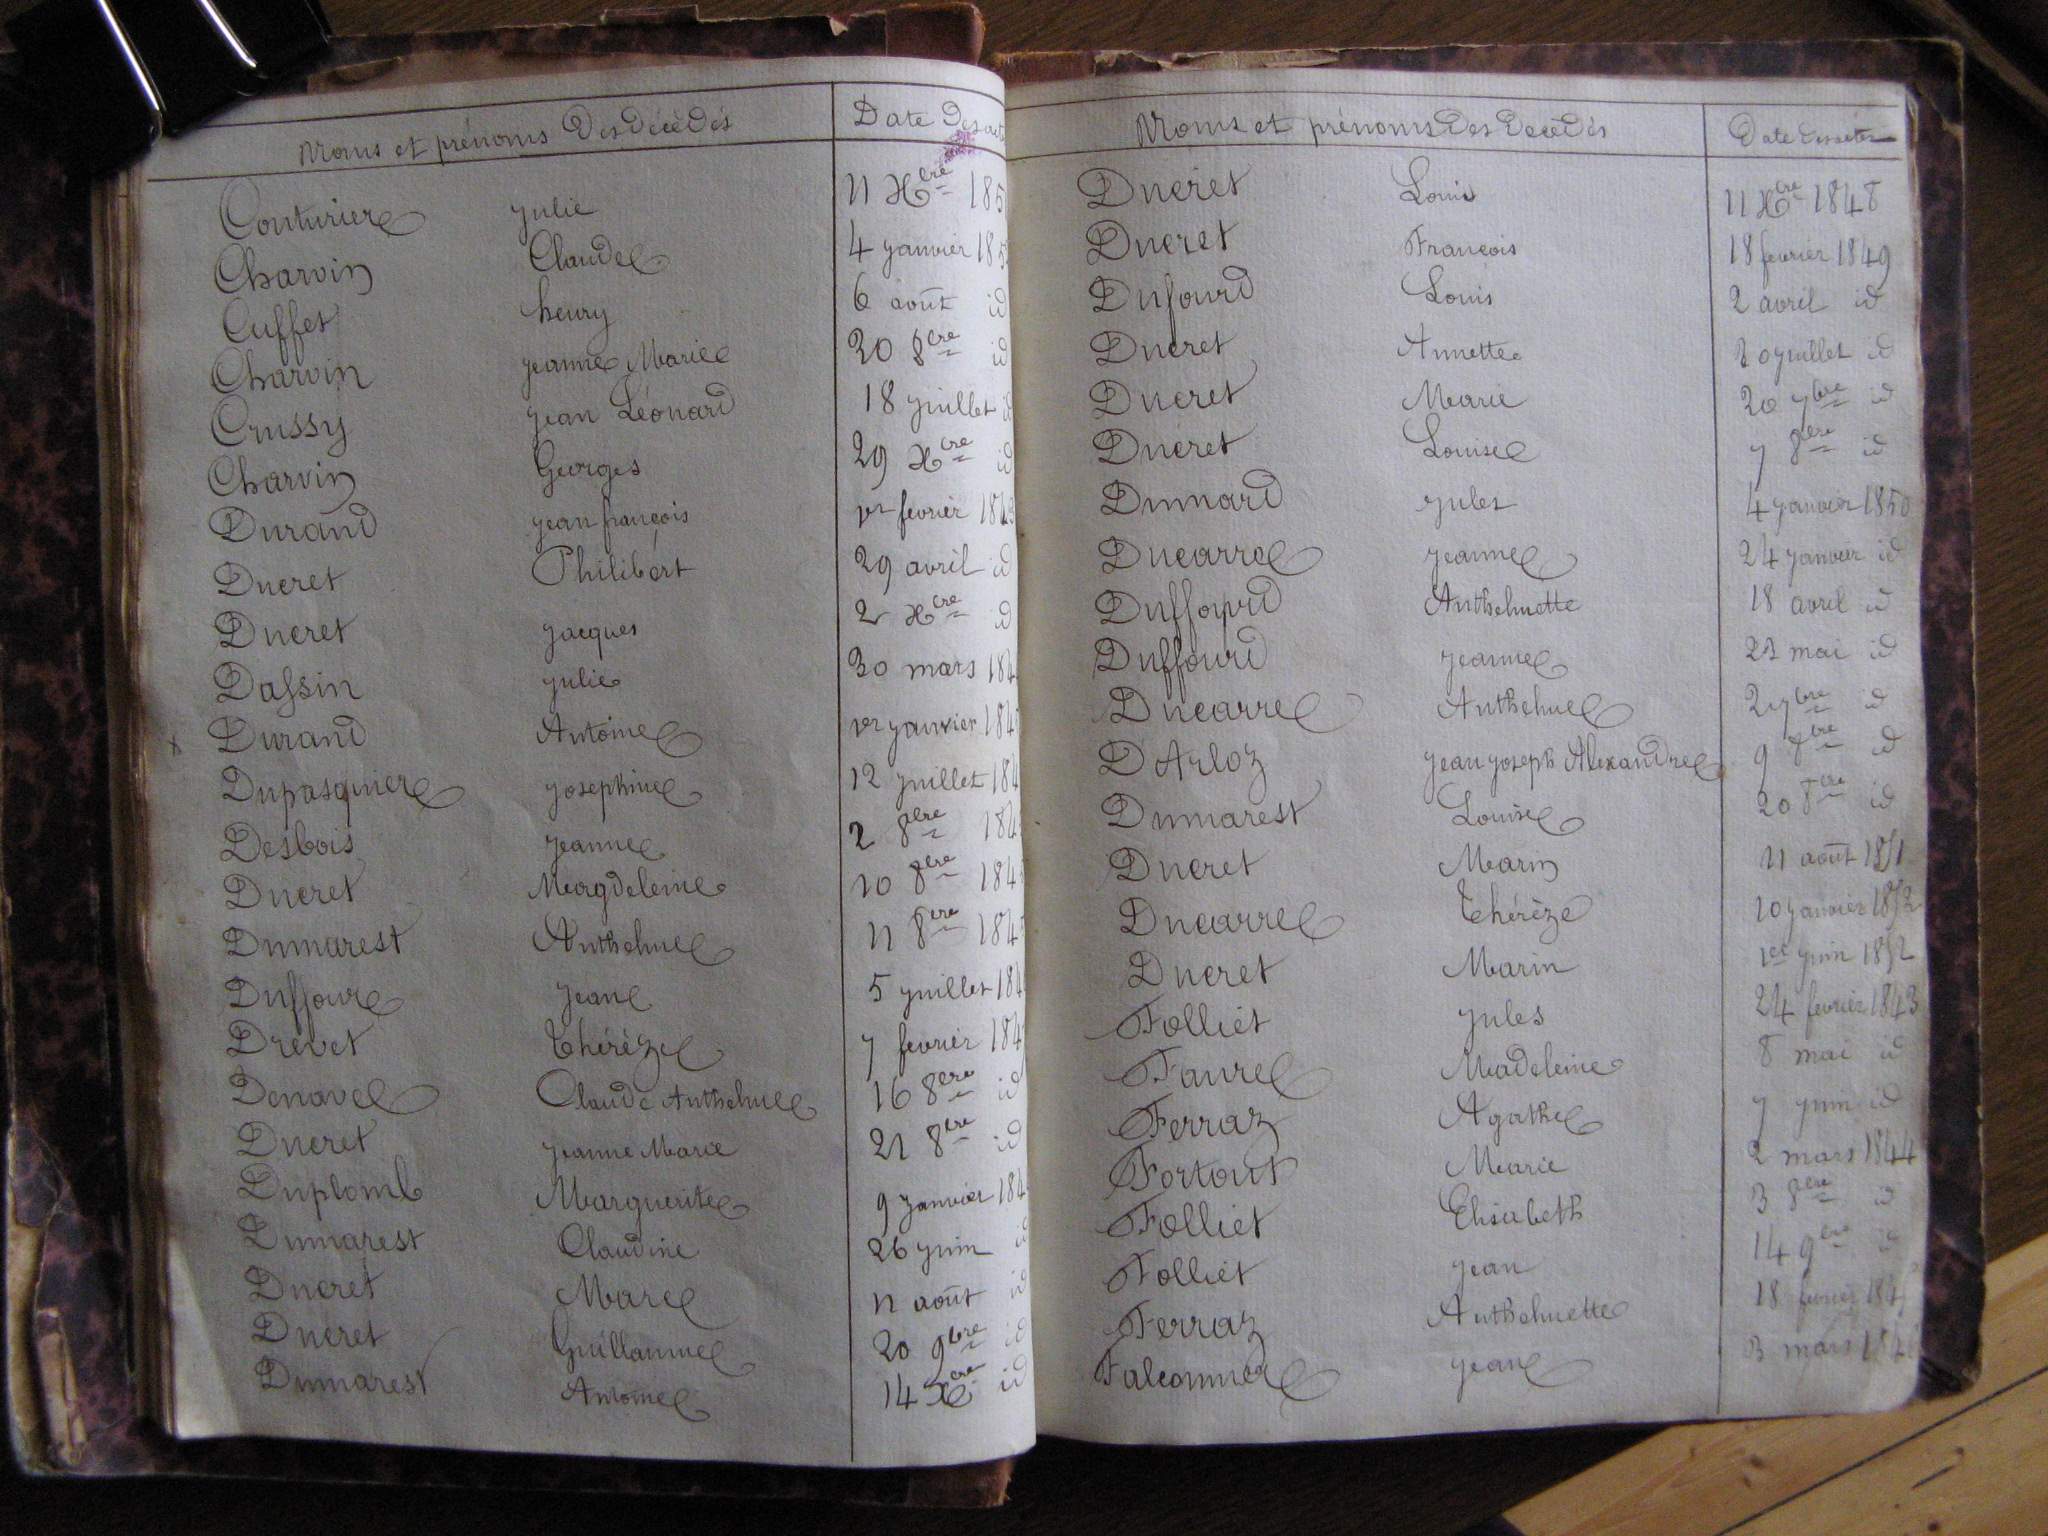 Noms et prénoms Des Décédés Date Des
Couturier Julie 11 Xbre 185
Charvin Claude 4 janvier 185
Cuffet henry 6 août id
Charvin jeanne Marie 30 8bre id
Crussy jean Léonard 18 juillet id
Charvin Georges 29 Xbre id
Durand jean françois 1er fevrier 1843
Ducret Philibert 29 avril id
Ducret jacques 2 Xbre id
Dassin julie 30 mars 184
Durand Antoine 1er janvier 184
Dupasquier josephine 12 juillet 184
Desbois jeanne 2 8bre 184
Ducret Magdeleine 10 8bre 184
Dumarest Anthelme 11 8bre 184
Duffour jean 5 juillet 184
Drevet Thérèze 7 fevrier 184
Denave Claude Anthelme 16 8bre id
Ducret jeanne Marie 21 8bre id
Duplomb Marguerite 9 janvier 184
Dumarest Claudine 26 juin id
Ducret Marc 11 août id
Ducret Guillaume 20 9bre id
Dumarest Antoine 14 Xbre id
Noms et prénoms Des Décédés Date des actes
Ducret Louis 11 Xbre 1848
Ducret François 18 fevrier 1849
Dufourd Louis 2 avril id
Ducret Annette 20 juillet id
Ducret Marie 20 7bre id
Ducret Louise 7 8bre id
Dunnard jules 4 janvier 1850
Ducarre jeanne 24 janvier id
Duffourd Anthelmette 18 avril id
Duffourd jeanne mai id
Ducarre Anthelme 2 7bre id
DArloz jean joseph Alexandre 9 id
Dumarest Louise 20 8bre id
Ducret Marin 11 août 1851
Ducarre Thérèze 10 janvier 1852
Ducret Marin 1er juin 1852
Folliet jules 24 fevrier 1843
Faure Madeleine 8 mai id
Ferraz Agathe 7 juin id
Fortout Marie 2 mars 1844
Folliet Elisabeth 3 8bre id
Folliet jean 14 9bre id
Ferraz Anthelmette 18 fevrier 184
Falconnier jean 3 mars 184